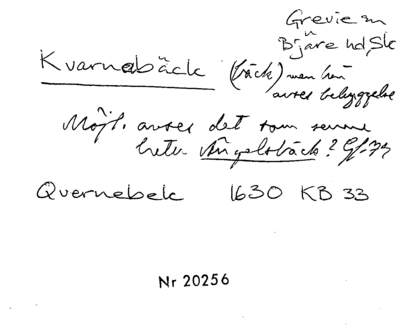 Grevie sn
Bjäre hd, Sk
Kvarnabäck (bäck) men här
avses bebyggelse
Möjl. avses det som senare
heter Ängelsbäck?
Quernebek 1630 KB 33
Nr 20256